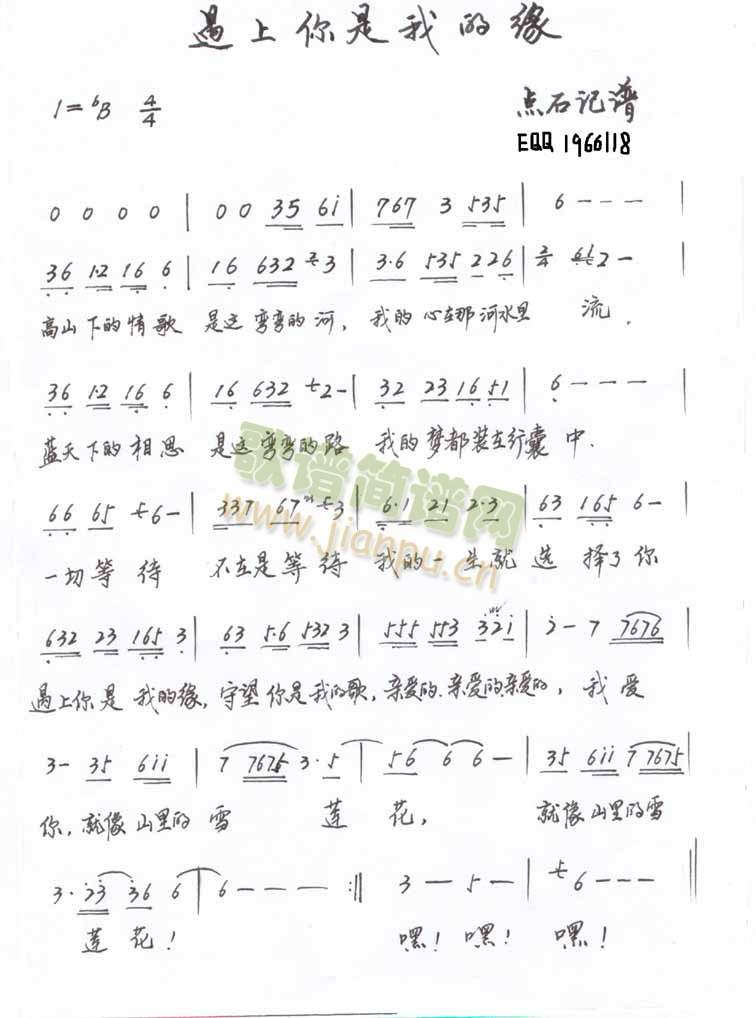 遇上你是我的缘
1=ᵇB 4/4
点石记谱
EQQ 1966118
0 0 0 0 | 0 0 35 6i | 767 3 535 | 6 - - - |
36 1·2 16 6 | 16 632 3 | 3·6 535 226 | 2/4 2 - |
高山下的情歌 是这弯弯的河, 我的心在那河水里 流.
36 1·2 16 6 | 16 632 2 - | 32 23 16 51 | 6 - - - |
蓝天下的相思 是这弯弯的路 我的梦都装在行囊中.
歌谱简谱网
www.jianpu.cn
66 65 6 - | 337 67 3 | 6·1 21 2·3 | 63 165 6 - |
一切等待 不在是等待 我的一生就选择了你
632 23 165 3 | 63 5·6 532 3 | 555 553 32i | 2 - 7 7676 |
遇上你是我的缘, 守望你是我的歌, 亲爱的.亲爱的亲爱的, 我爱
3 - 35 6ii | 7 7675 3·5 | 56 6 6 - | 35 6ii 7 7675 |
你, 就像山里的雪 莲花, 就像山里的雪
3·23 36 6 | 6 - - - :‖ 3 - 5 - | 6 - - - ‖
莲花! 嘿! 嘿! 嘿!